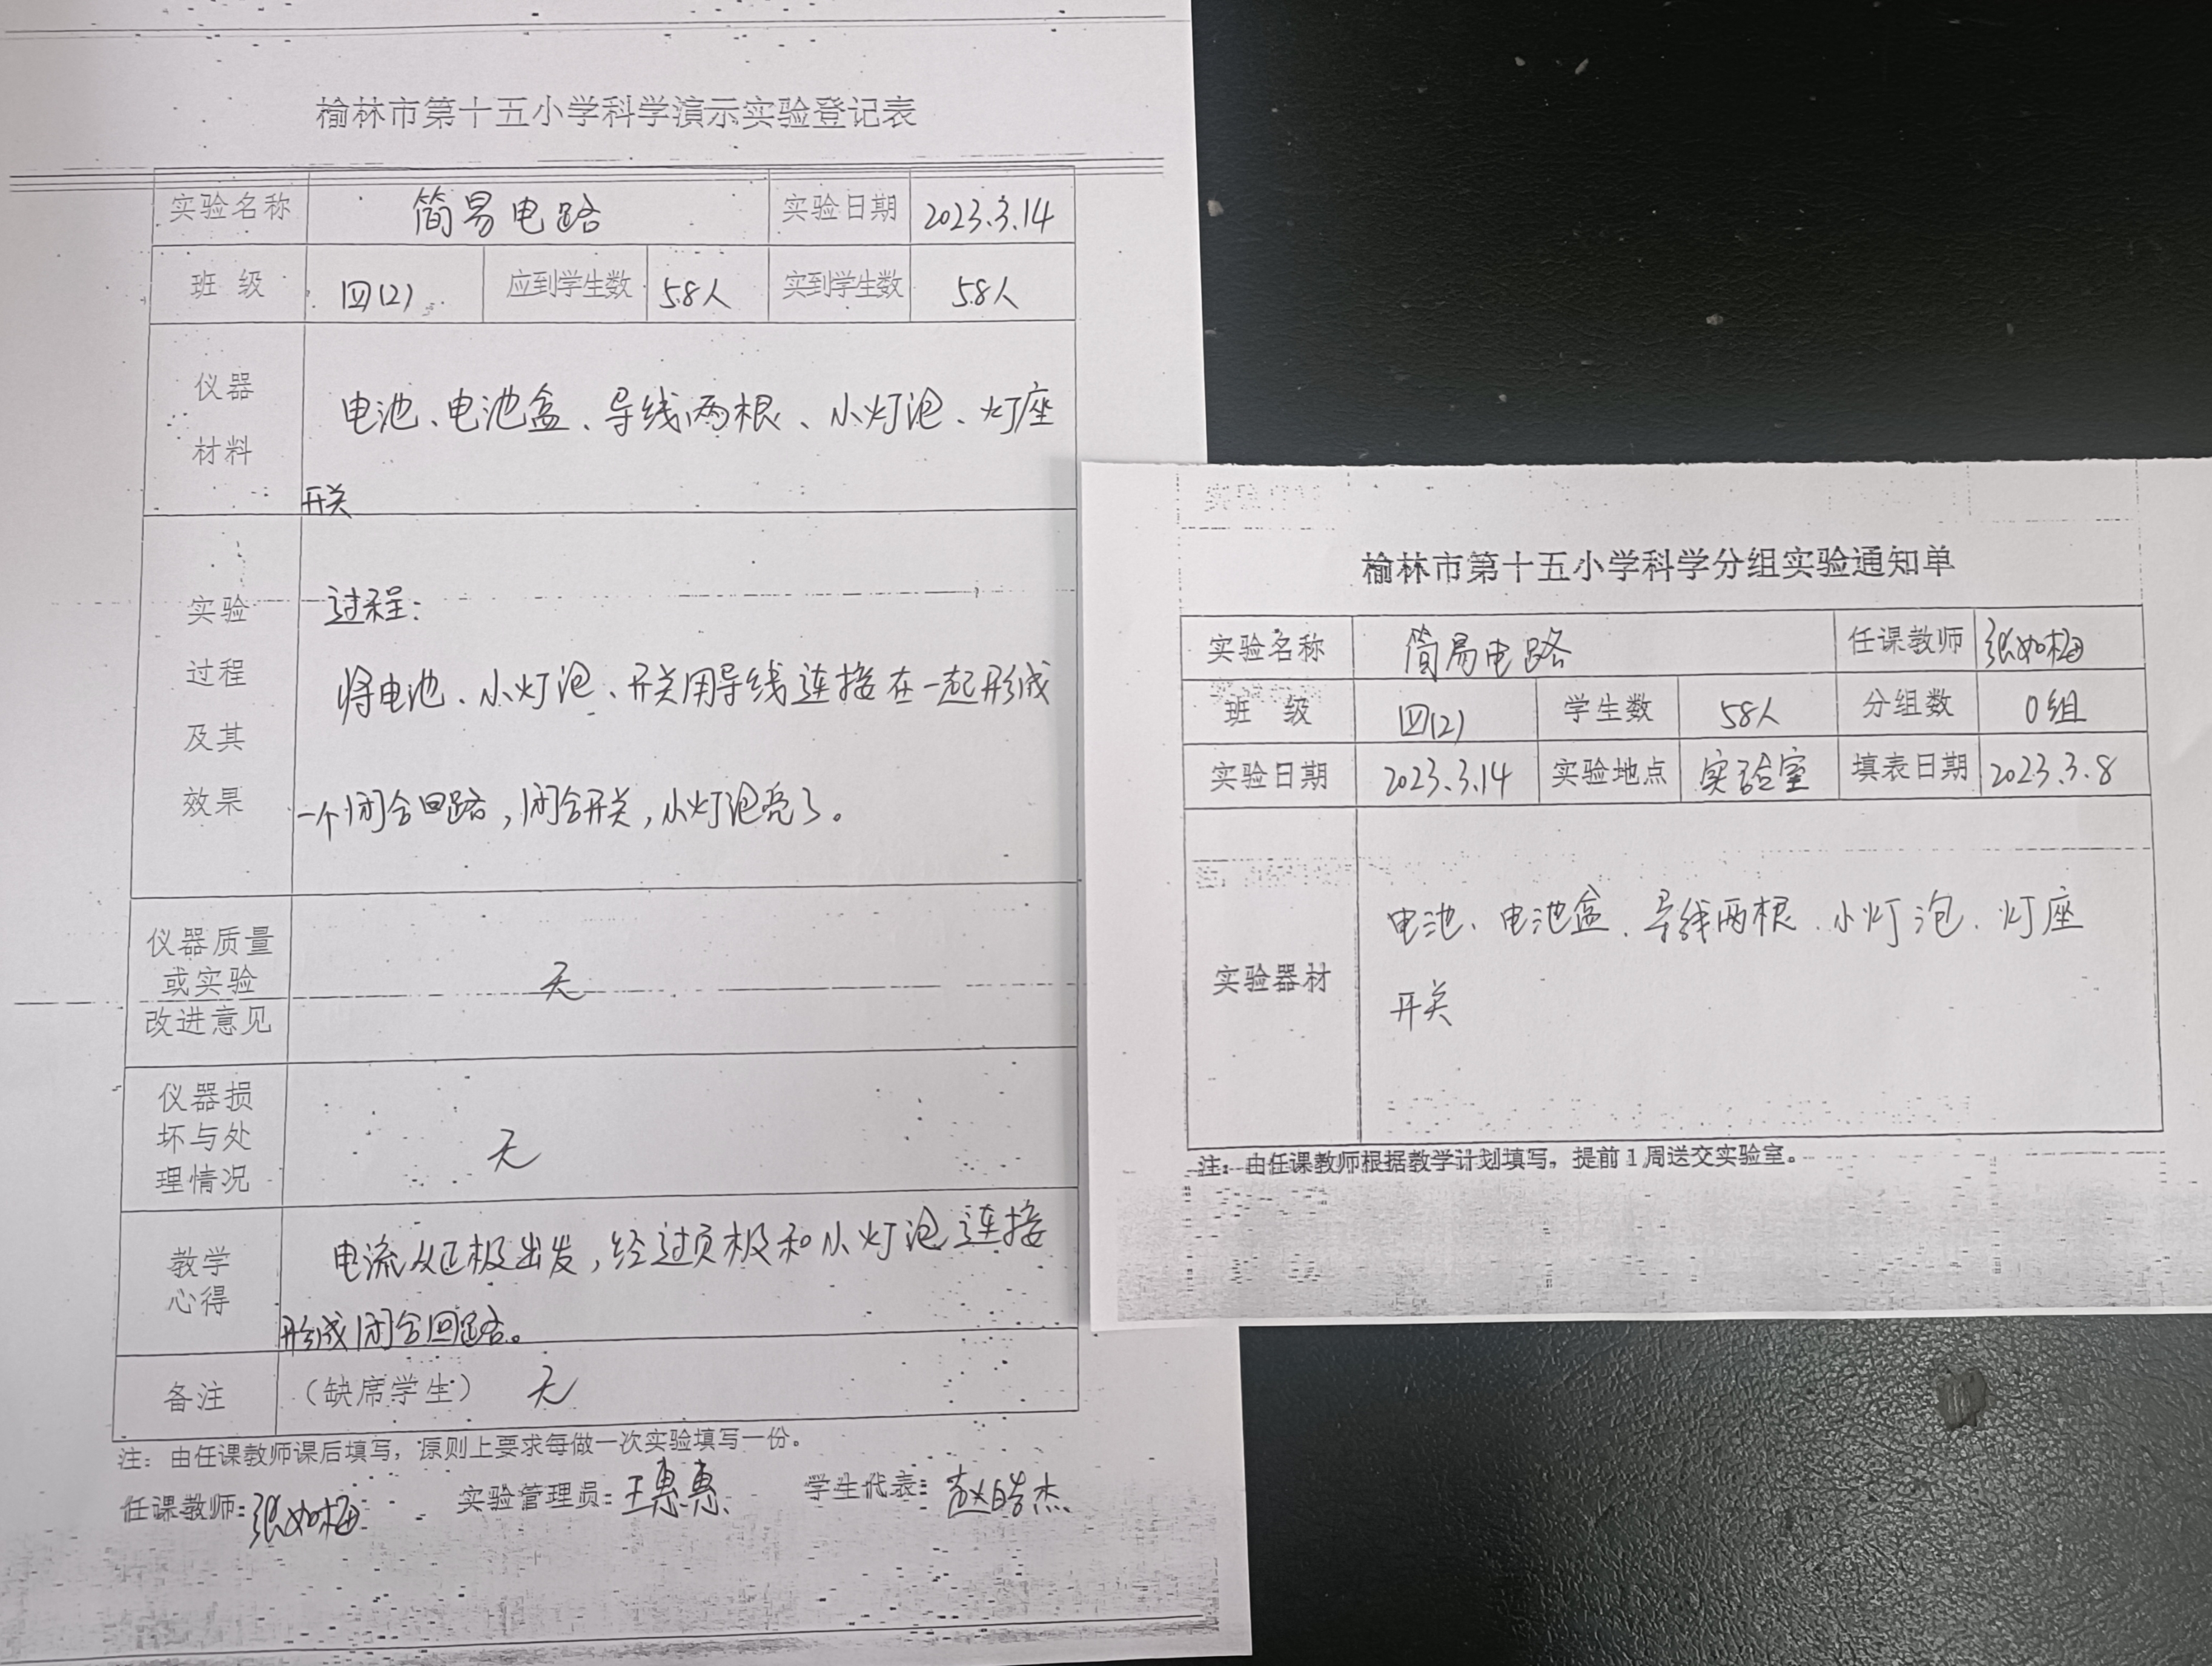 榆林市第十五小学科学演示实验登记表
实验名称 简易电路 实验日期 2023.3.14
班 级 四(2) 应到学生数 58人 实到学生数 58人
仪器
材料
电池、电池盒、导线两根、小灯泡、灯座
开关
实验
过程
及其
效果
过程:
将电池、小灯泡、开关用导线连接在一起形成
一个闭合回路,闭合开关,小灯泡亮了。
仪器质量
或实验
改进意见
无
仪器损
坏与处
理情况
无
教学
心得
电流从正极出发,经过负极和小灯泡连接
形成闭合回路。
备注 (缺席学生) 无
注:由任课教师课后填写,原则上要求每做一次实验填写一份。
任课教师:张如梅 实验管理员:王惠惠 学生代表:赵皓杰
榆林市第十五小学科学分组实验通知单
实验名称 简易电路 任课教师 张如梅
班 级 四(2) 学生数 58人 分组数 0组
实验日期 2023.3.14 实验地点 实验室 填表日期 2023.3.8
实验器材
电池、电池盒、导线两根、小灯泡、灯座
开关
注:由任课教师根据教学计划填写,提前1周送交实验室。